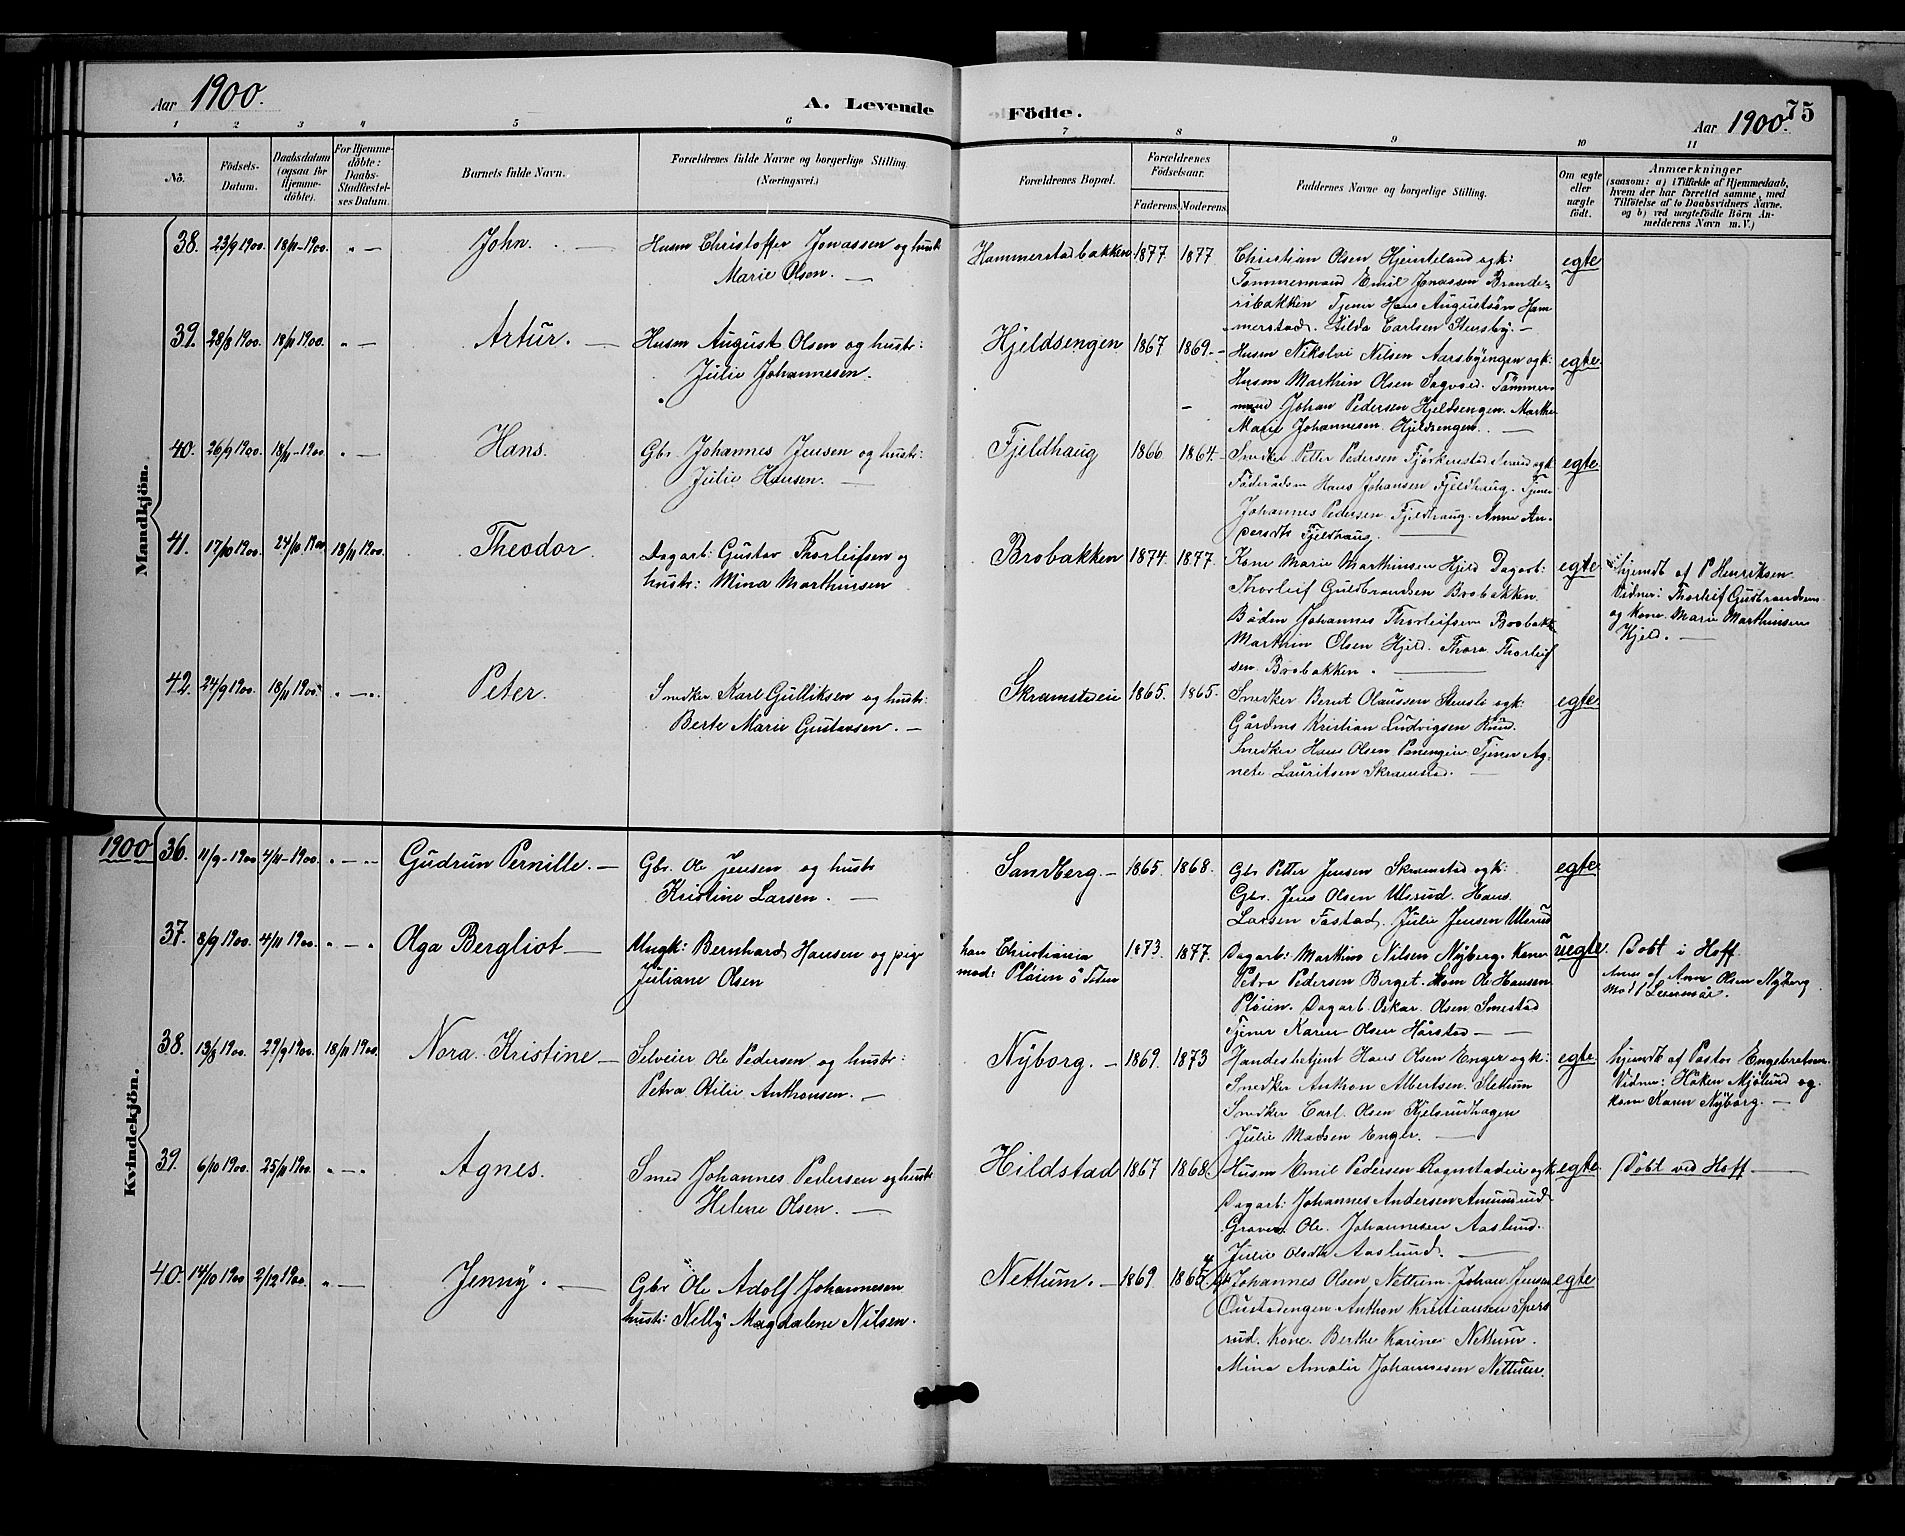 Aar 1900.
A. Levende Födte.
Aar 1900. 75
1 2 3 4 5 6 7 8 9 10 11
No. Födsels-Datum. Daabsdatum (ogsaa for Hjemmedöbte). For Hjemmedöbte: Daabs-Stadfæstelses Datum. Barnets fulde Navn. Forældrenes fulde Navne og borgerlige Stilling (Næringsvei.) Forældrenes Bopæl. Forældrenes Födselsaar. Faderens. Moderens. Faddernes Navne og borgerlige Stilling. Om ægte eller uægte födt. Anmærkninger (saasom: a) i Tilfælde af Hjemmedaab, hvem der har forrettet samme, med Tilföielse af to Daabsvidners Navne, og b) ved uægtefödte Börn Anmelderens Navn m. V.)
Mandkjön.
38. 23/9 1900. 18/11-1900. " — John. — Husm Christoffer Jonassen og hustr Hammerstadbakken 1877. 1877 Christian Olsen ogk: egte
Marie Olsen. — Tømmermand Emil Jonassen Brande-
ribakken Tjener Hans Augustsøn Ham-
merstad. Hilda Carlsen Stensby. —
39. 28/8 1900. 18/11 1900. " — Artur. — Husm August Olsen og hustr: Hjeldsengen 1867 1869. - Husm Nilsen Aarsbyengen ogk: egte
Julie Johannesen. Husm Marthin Olsen Tømmer-
mand Johan Pedersen Hjeldsengen. Marthe
Marie Johannesen Hjeldsengen. —
40. 26/9 1900. 18/11-1900 " — Hans. Gbr. Johannes Jensen og hustr: Fjeldhaug 1866 1864. - Snedker Petter Pedersen ogk egte
Julie Hansen. — Føderådsm Hans Johansen Fjeldhaug. Tjener
Johannes Pedersen Fjeldhaug. Anne An-
Fjeldhaug. —
41. 17/10 1900. 24/10 1900 18/11 1900. Theodor. Dagarb: Gustav Thorleifsen og Brobakken 1874. 1877. Kone Marie Marthinsen Hjeld Dagarb: egte hjemdt af P Henriksen
hustr: Mina Marthinsen Thorleif Gulbrandsen Brobakken. Vidner: Thorleif Gulbrandsen
Johannes Thorleifsen Brobakk og Kone Marie Marthinsen
Marthin Olsen Hjeld. Thora Thorleif Hjeld. —
sen Brobakken. —
42. 24/9 1900. 18/11 1900. " — ". Peter. Snedker Karl Gulliksen og hustr: Skramstadeie 1865. 1865. Snedker Bernt Olaussen ogk: egte
Berte Marie Gustavsen. — Gårdms Kristian Ludvigsen Rund.
Snedker Hans Olsen Tjener Ag-
nete Lauritsen Skramstad. —
1900
Kvindekjön.
36. 11/9-1900 4/11-1900. " — " Gudrun Pernille. — Gbr. Ole Jensen og hustr Sandberg. - 1865. 1868. Gbr Petter Jensen Skramstad ogk: egte
Kristine Larsen. — Gbr. Jens Olsen Ulsrud. Hans
Larsen Fostad. Julie Jensen Ulsrud
37. 8/9 1900. 4/11 1900. " — " Olga Bergliot — Ungk: Bernhard Hansen og pig han Christiania 1873 1877. Dagarb: Martinus Nilsen Nyborg. Kone uegte. Døbt i Hoff.
Juliane Olsen mod: Pløien ö Toten Petra Pedersen Berget. Ole Hansen Olsen Nyborg
Pløien. Dagarb Oskar Olsen Smestad Mod.
Tjener Karen Olsen Hårstad —
38. 13/8 1900. 29/9 1900. 18/11 1900. Nora Kristine — Selveier Ole Pedersen og hustr: Nyborg. - 1869. 1873 Handesbetjent Hans Olsen Enger ogk: egte hjemdt af Pastor Engebretsen
Petra Otilie Anthonsen. — Snedker Anthon Albertsen Sletum Vidner: Håken Mjølund og
Snedker Carl Olsen Kjelsrudhagen kone Karen Nyborg. —
Julie Madsen Enger. —
39. 6/10 1900. 25/11 1900. " — " Agnes. Smed Johannes Pedersen og hustr: Hildstad 1867 1868 Husm Emil Pedersen Rognstadeie ogk egte Døbt ved Hoff —
Helene Olsen. — Dagarb: Johannes Andersen Amundrud
Graver Ole Johannesen Aaslund.
Julie Olsdtr Aaslund. —
40. 14/10 1900 2/12 1900. " — Jenny. — Gbr Ole Adolf Johannesen Nettum. - 1869. 1865 Johannes Olsen Nettum. Johan Jensen egte
hustr: Nelly Magdalene Nilsen. Anthon Kristiansen Spers
rud. Kone Berthe Karine Nettum.
Mina Amalie Johannesen Nettum.